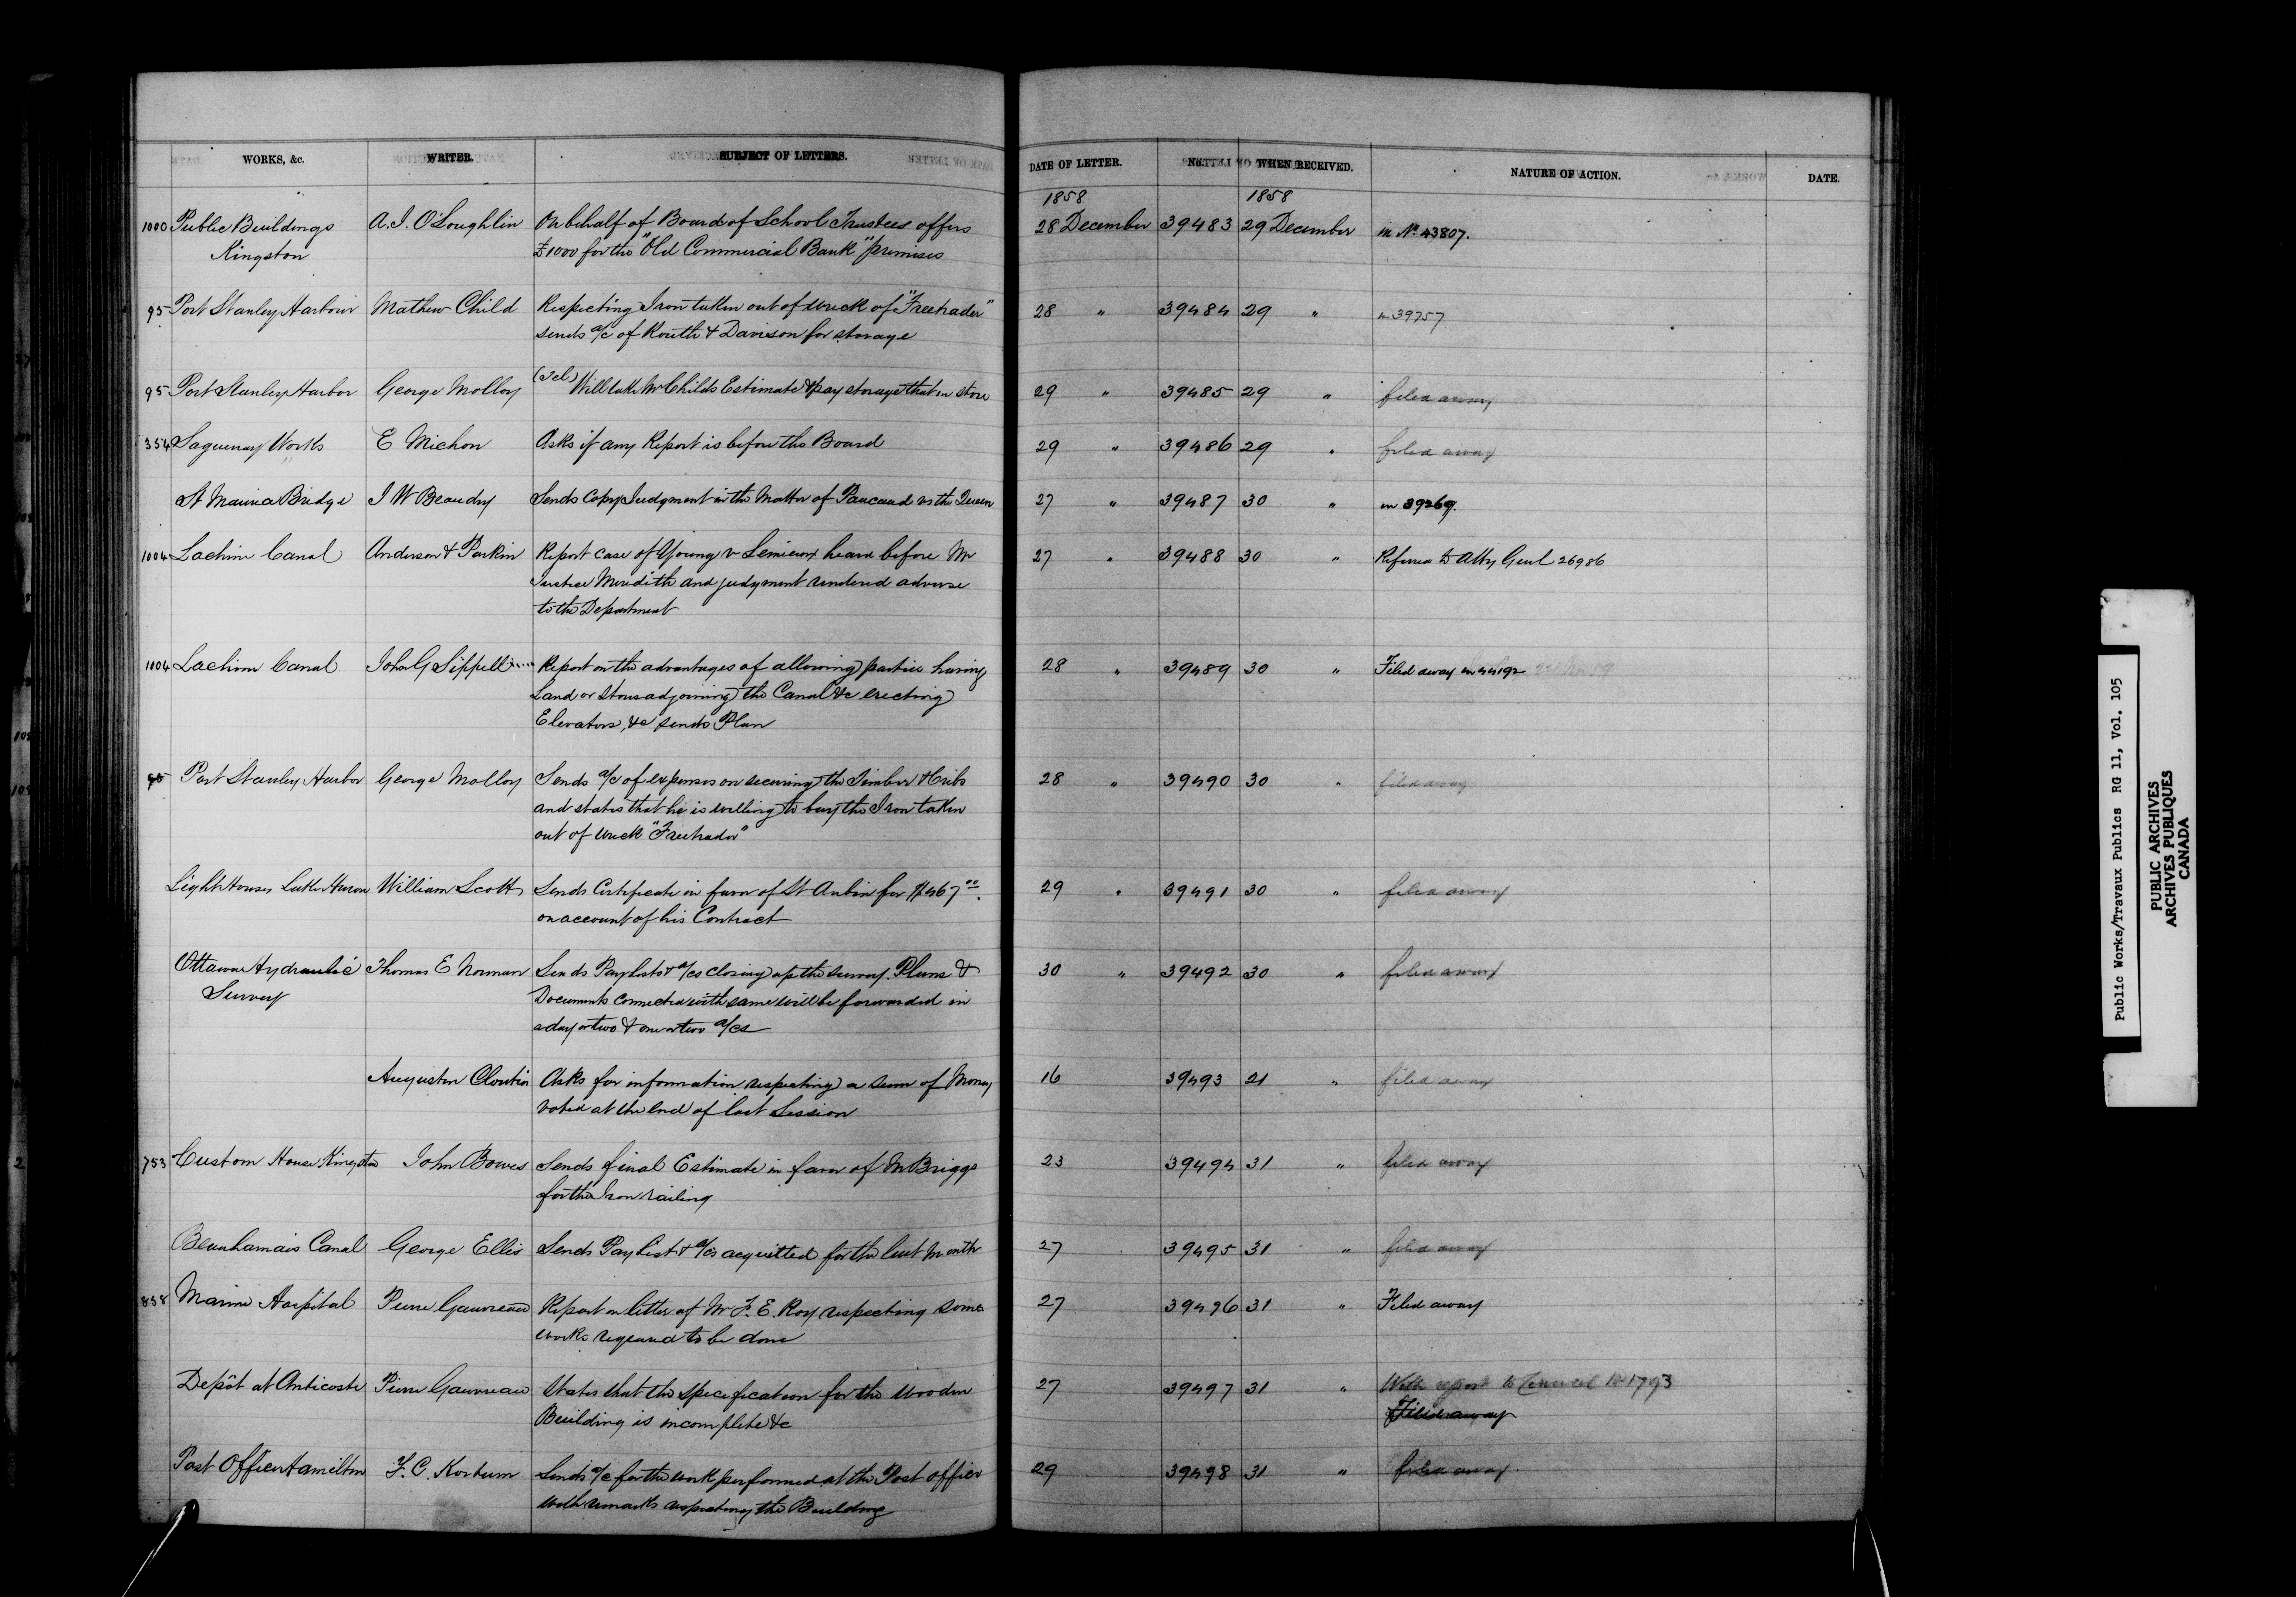 WORKS, &c. WRITER. SUBJECT OF LETTERS. DATE OF LETTER. No. WHEN RECEIVED. NATURE OF ACTION. DATE.
1858 1858
1000 Public Buildings A. I. O'Loughlin On behalf of Board of School Trustees offers 28 December 39483 29 December in No. 43807.
Kingston £1000 for the "Old Commercial Bank" premises
95 Port Stanley Harbour Mathew Child Respecting Iron taken out of wreck of "Freetrader" 28 " 39484 29 " in 39757
sends a/c of Routh & Davison for storage
95 Port Stanley Harbor George Molloy (Tel) Will take Mr Childs Estimate & pay storage that in store 29 " 39485 29 " filed away
354 Saguenay Works E Michon Asks if any Report is before the Board 29 " 39486 29 " filed away
St Maurice Bridge J W Beaudry Sends Copy Judgment in the Matter of Pacaud vs the Queen 27 " 39487 30 " in 39269.
1004 Lachine Canal Anderson & Parkin Report case of Young v Lemieux heard before Mr 27 " 39488 30 " Referred to Atty Genl 26986
Justice Meredith and judgment rendered adverse
to the Department
1004 Lachine Canal John G Sippell Report on the advantages of allowing parties having 28 " 39489 30 " Filed away in 44192
Land or Stores adjoining the Canal &c erecting
Elevators, &c sends Plan
95 Port Stanley Harbor George Molloy Sends a/c of expenses on securing the Timber & Cribs 28 " 39490 30 " filed away
and states that he is willing to buy the Iron taken
out of wreck "Freetrader"
Light Houses Lake Huron William Scott Sends Certificate in favor of St Aubin for $467.00 29 " 39491 30 " filed away
on account of his Contract
Ottawa Hydraulic Thomas E Norman Sends Pay Lists & a/cs closing up the survey. Plans & 30 " 39492 30 " filed away
Survey Documents connected with same will be forwarded in
a day or two & one or two a/cs
Augustin Cloutier Asks for information respecting a sum of Money 16 39493 21 " filed away
voted at the end of last Session
753 Custom House Kingston John Bowes Sends final Estimate in favor of Mr Briggs 23 39494 31 " filed away
for the Iron railing
Beauharnais Canal George Ellis Sends Pay List & a/cs acquitted for the last Month 27 39495 31 " filed away
858 Marine Hospital Pierre Gauvreau Report on letter of Mr F. E. Roy respecting some 27 39496 31 " Filed away
works required to be done
Depôt at Anticosti Pierre Gauvreau States that the specification for the Wooden 27 39497 31 " With report to Council No 1793
Building is incomplete &c Filed away
Post Office Hamilton F. C. Kortum Sends a/c for the work performed at the Post office 29 39498 31 " filed away.
with remarks respecting the Building
Public Works/Travaux Publics RG 11, Vol. 105
PUBLIC ARCHIVES
ARCHIVES PUBLIQUES
CANADA